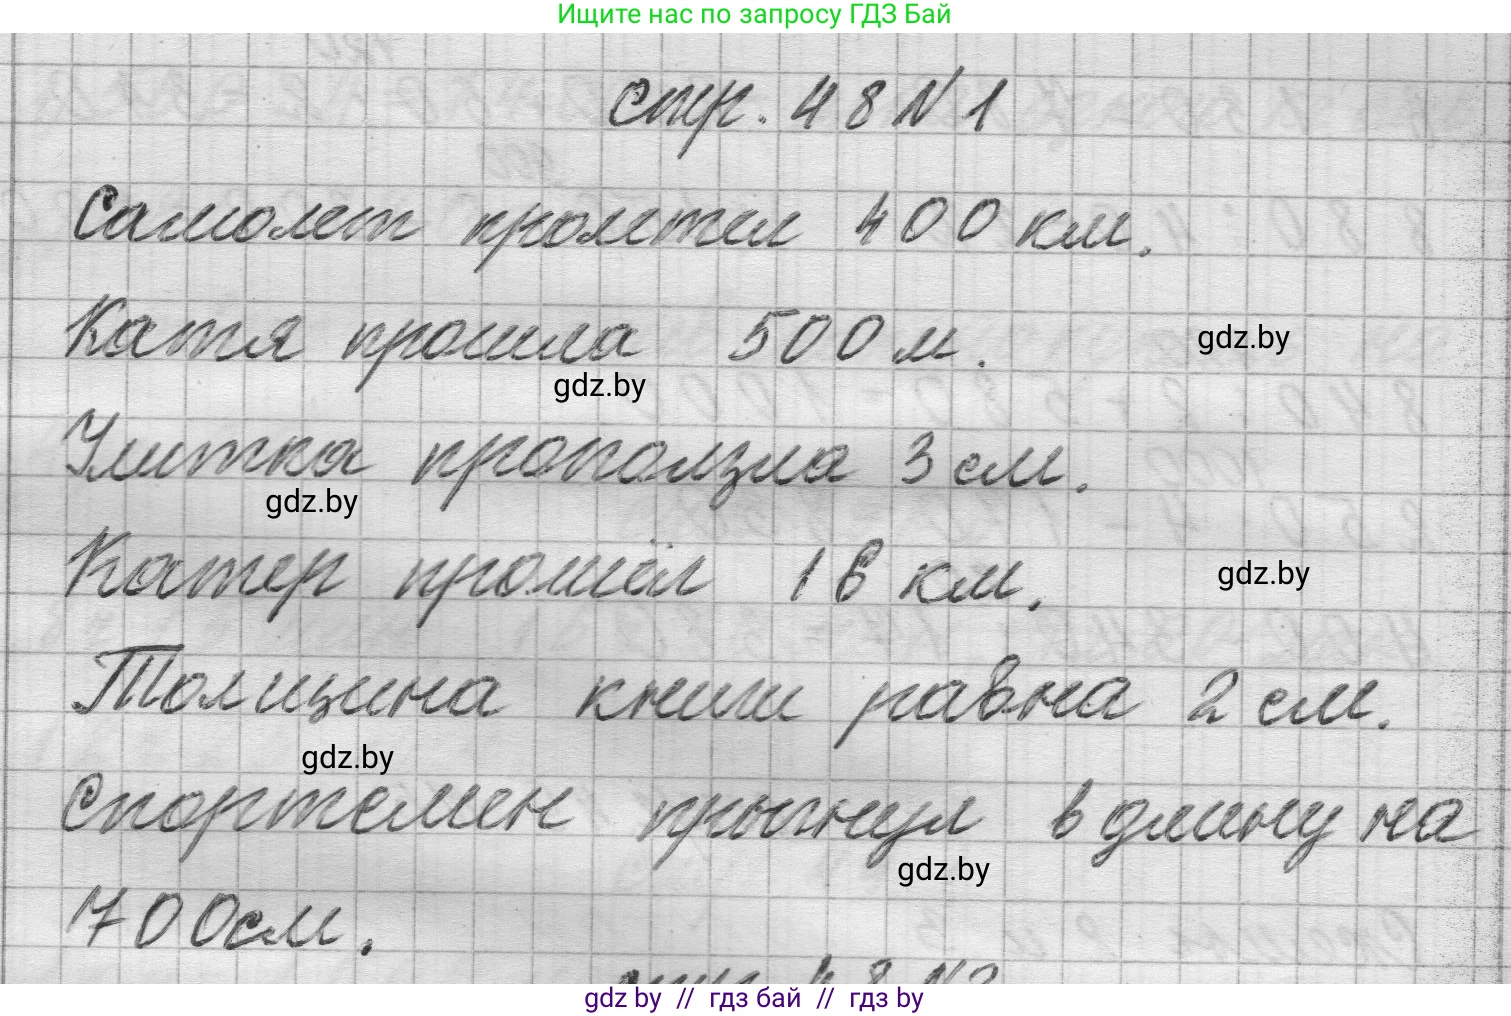 Ищите нас по запросу ГДЗ Бай
стр. 48 N 1
Самолет пролетел 400 км.
Катя прошла 500 м.
gdz.by
gdz.by
Улитка проползла 3 см.
gdz.by
Катер прошёл 16 км.
gdz.by
Толщина книги равна 2 см.
gdz.by
Спортсмен прыгнул в длину на
gdz.by
700 см.
стр. 48 N2
gdz by // гдз бай // гдз by